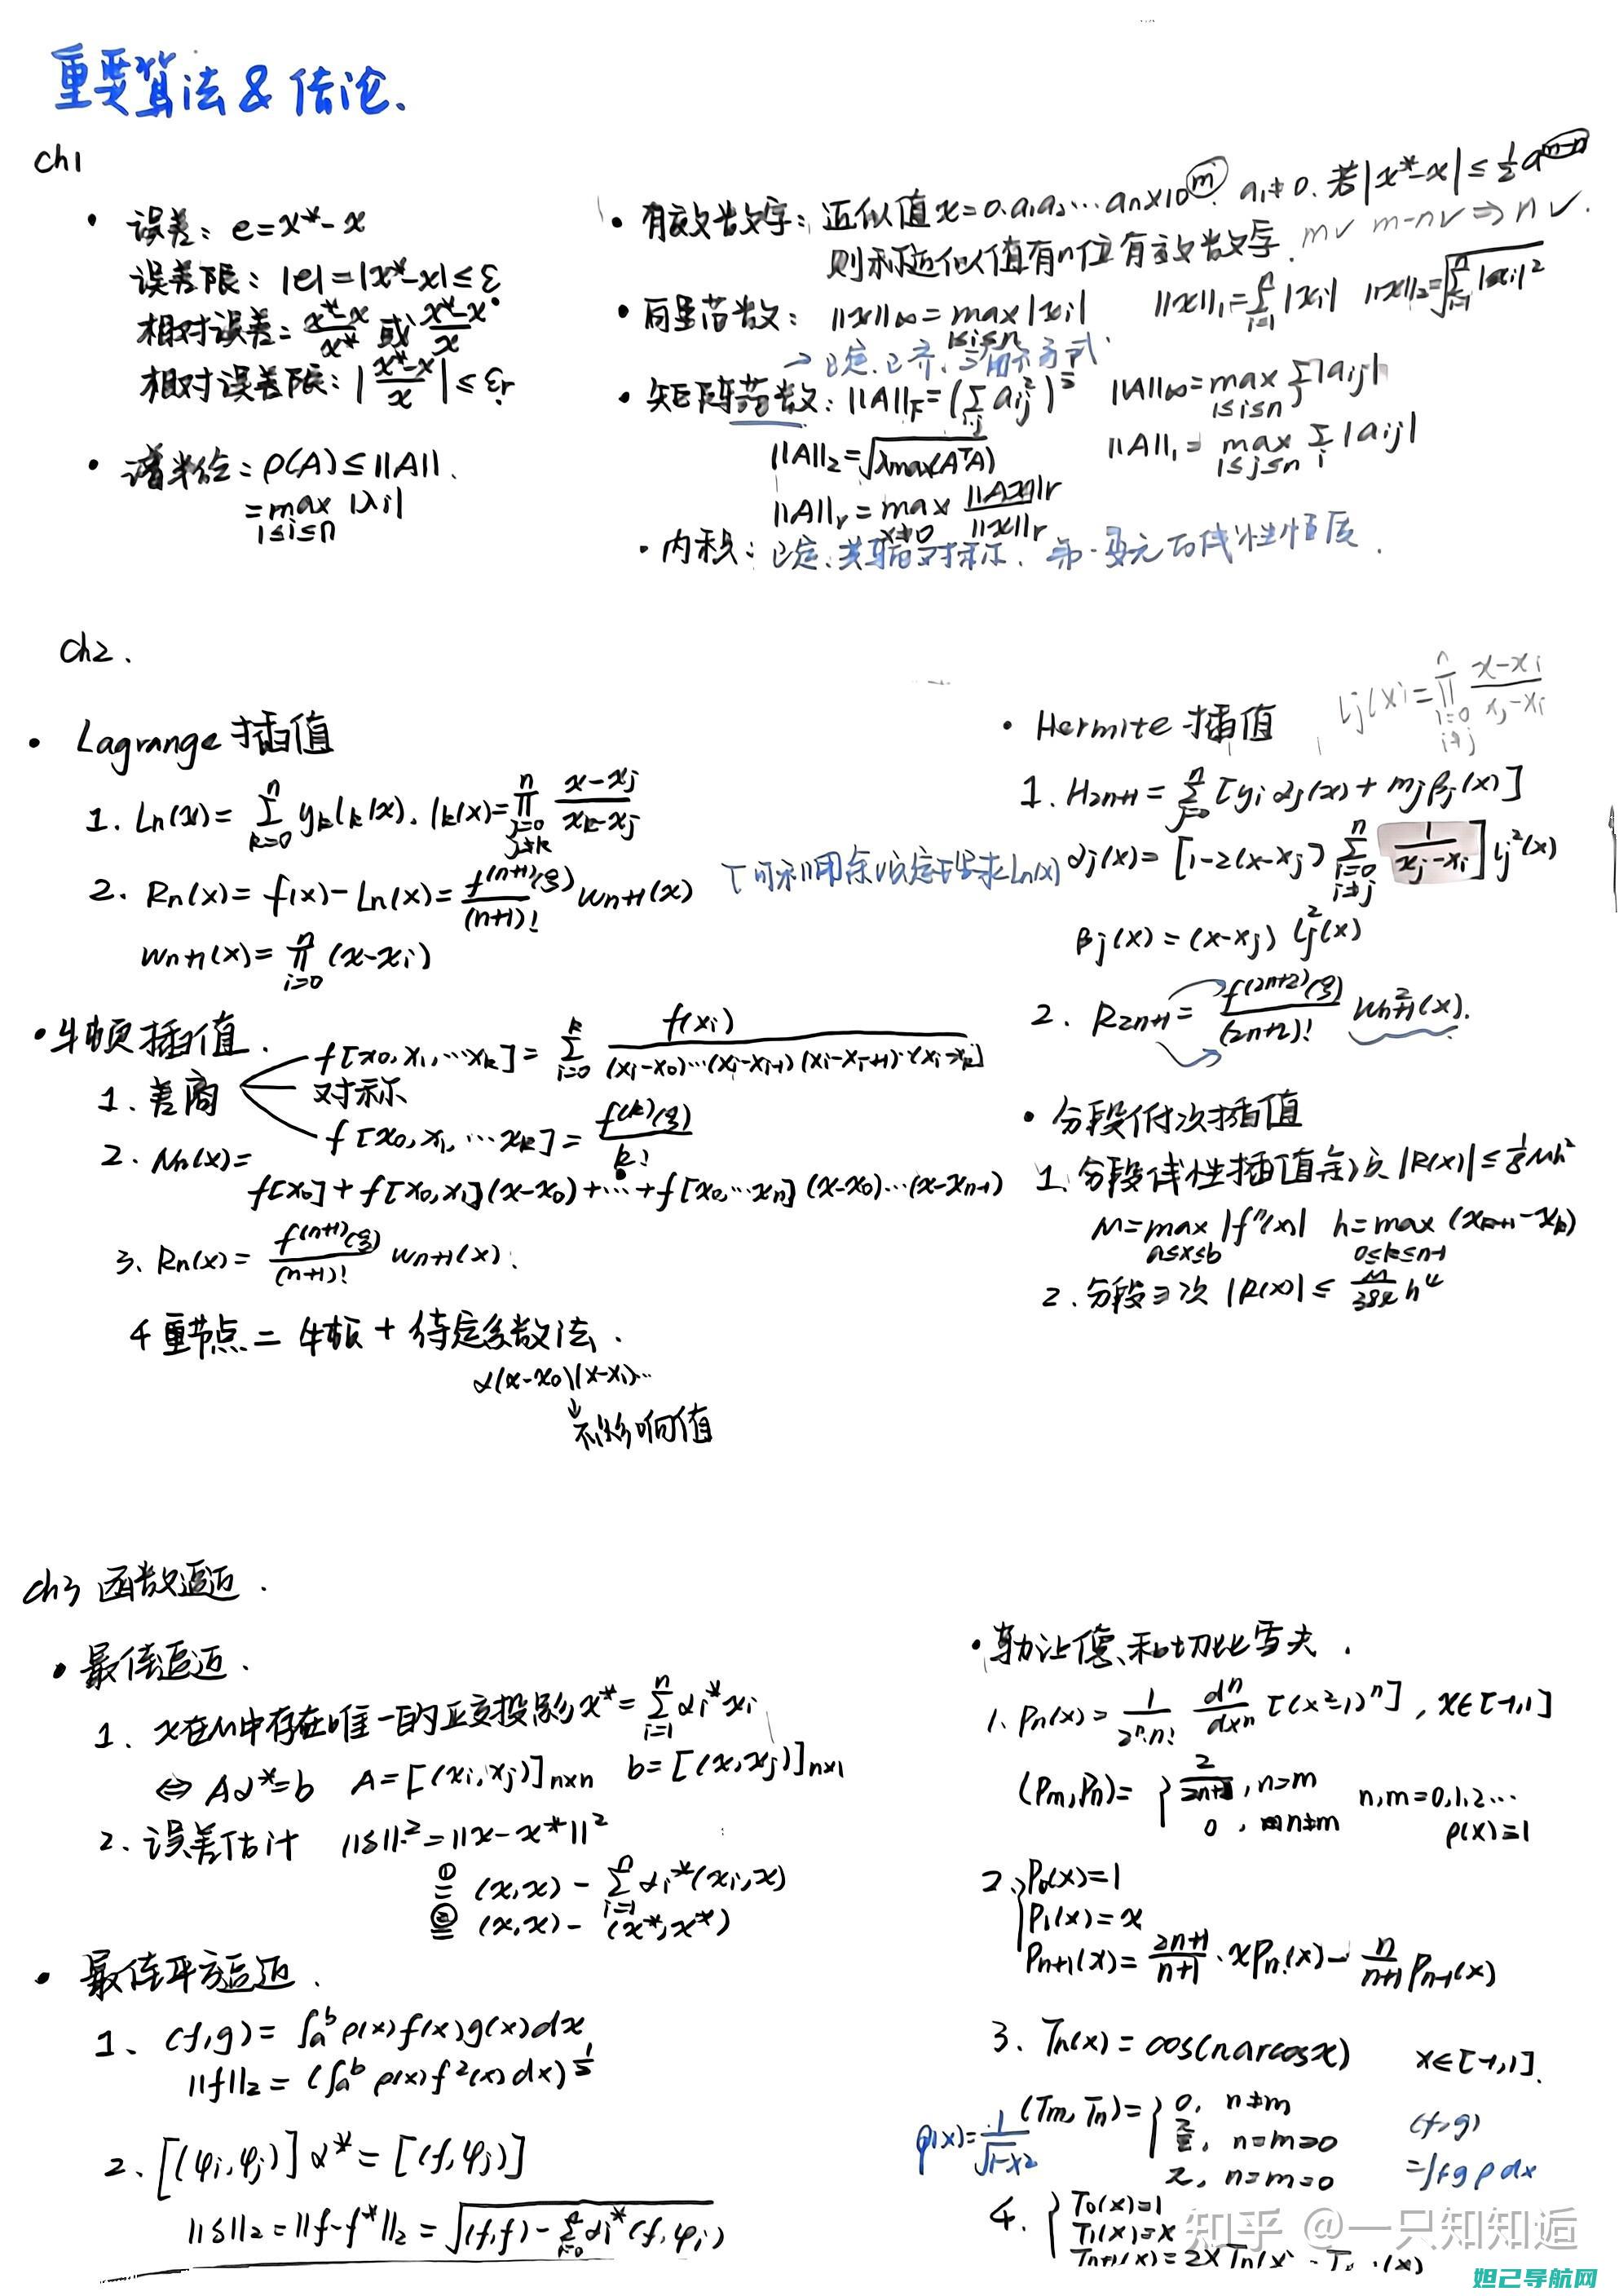 重要算法 & 结论.
ch1
· 误差: e=x*-x
误差限: |e|=|x*-x|≤ε
相对误差: (x*-x)/x* 或 (x*-x)/x
相对误差限: |(x*-x)/x|≤εr
· 谱半径: ρ(A)≤||A||.
=max 1≤i≤n |λi|
· 有效数字: 近似值 x=0.a1a2…an×10^m. a1≠0. 若|x*-x|≤1/2 a^(m-n)
则称近似值有n位有效数字. m✓ m-n✓ ⇒ n✓.
· 向量范数: ||x||∞=max 1≤i≤n |xi| ||x||1=Σ(i=1,n)|xi| ||x||2=√(Σ(i=1,n)|xi|²)
→正定.正齐.三角不等式.
· 矩阵范数: ||A||F=(Σi,j aij²)^(1/2) ||A||∞=max 1≤i≤n Σj|aij|
||A||2=√(λmax(AᵀA)) ||A||1=max 1≤j≤n Σi|aij|
||A||r=max x≠0 ||Ax||r/||x||r
· 内积: 正定.共轭对称. 第一变元的线性性质.
ch2.
· Lagrange 插值
1. Ln(x)=Σ(k=0,n) yk lk(x). lk(x)=Π(j=0,j≠k,n) (x-xj)/(xk-xj)
2. Rn(x)=f(x)-Ln(x)=f^(n+1)(ξ)/(n+1)! wn+1(x)
wn+1(x)=Π(i=0,n)(x-xi)
· 牛顿插值.
1. 差商
f[x0,x1,…xk]=Σ(i=0,k) f(xi)/((xi-x0)…(xi-xi-1)(xi-xi+1)…(xi-xk))
对称
f[x0,x1,…xk]=f^(k)(ξ)/k!
2. Nn(x)=
f[x0]+f[x0,x1](x-x0)+…+f[x0,…xn](x-x0)…(x-xn-1)
3. Rn(x)=f^(n+1)(ξ)/(n+1)! wn+1(x).
4 重节点 = 牛顿 + 待定系数法.
α(x-x0)(x-x1)…
↓
不影响值
· Hermite 插值 lj(x)=Π(i=0,i≠j,n) (x-xi)/(xj-xi)
1. H2n+1=Σ(j=0,n)[yiαj(x)+mjβj(x)]
αj(x)=[1-2(x-xj)Σ(i=0,i≠j,n) 1/(xj-xi)]lj²(x)
βj(x)=(x-xj)lj²(x)
2. R2n+1=f^(2n+2)(ξ)/(2n+2)! wn+1²(x).
· 分段低次插值
1. 分段线性插值余项 |R(x)|≤1/8 Mh²
M=max a≤x≤b |f''(x)| h=max 0≤k≤n-1 (xk+1-xk)
2. 分段三次 |R(x)|≤M/384 h⁴
ch3 函数逼近.
· 最佳逼近.
1. x在M中存在唯一的正交投影x*=Σ(i=1,n)αi*xi
⇔ Aα*=b A=[(xi,xj)]n×n b=[(x,xj)]n×1
2. 误差估计 ||δ||²=||x-x*||²
①= (x,x)-Σ(i=1,n)αi*(xi,x)
②= (x,x)-(x*,x*)
· 最佳平方逼近.
1. (f,g)=∫a^b ρ(x)f(x)g(x)dx
||f||2=(∫a^b ρ(x)f²(x)dx)^(1/2)
2. [(φi,φj)]α*=[(f,φj)]
||δ||2=||f-f*||2=√((f,f)-Σ(i=0,n)αi*(f,φi))
· 勒让德和切比雪夫.
1. Pn(x)=1/(2ⁿ·n!) dⁿ/dxⁿ[(x²-1)ⁿ], x∈[-1,1]
(Pm,Pn)={2/(2n+1), n=m n,m=0,1,2…
0, n≠m ρ(x)=1
2. {P0(x)=1
P1(x)=x
Pn+1(x)=(2n+1)/(n+1)·xPn(x)-n/(n+1)Pn-1(x)
3. Tn(x)=cos(narcosx) x∈[-1,1].
ρ(x)=1/√(1-x²) (Tm,Tn)={0, n≠m (f,g)
π/2, n=m≠0 =∫fgρdx
π, n=m=0
4. {T0(x)=1
T1(x)=x
Tn+1(x)=2xTn(x)-
知乎 @一只知知逅
妲己导航网